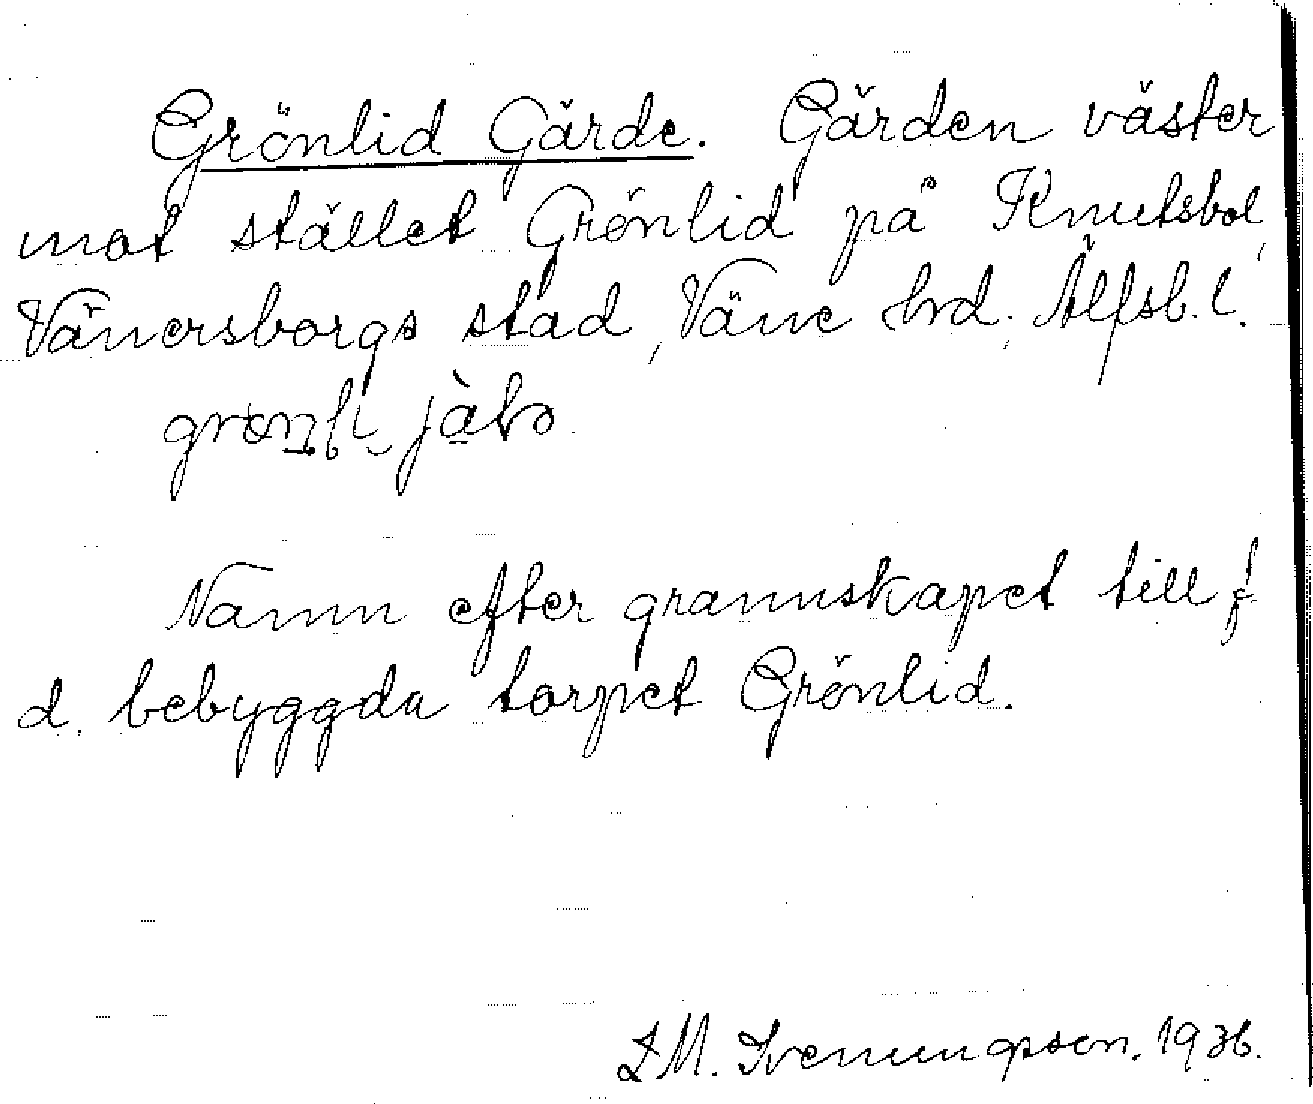 Grönlid Gärde. Gärden väster
mot stället Grönlid på Knutsbol,
Vänersborgs stad, Väne hd. Älfsb. l.
Namn efter grannskapet till f
d. bebyggda torpet Grönlid.
M. Svenungsson. 1936.